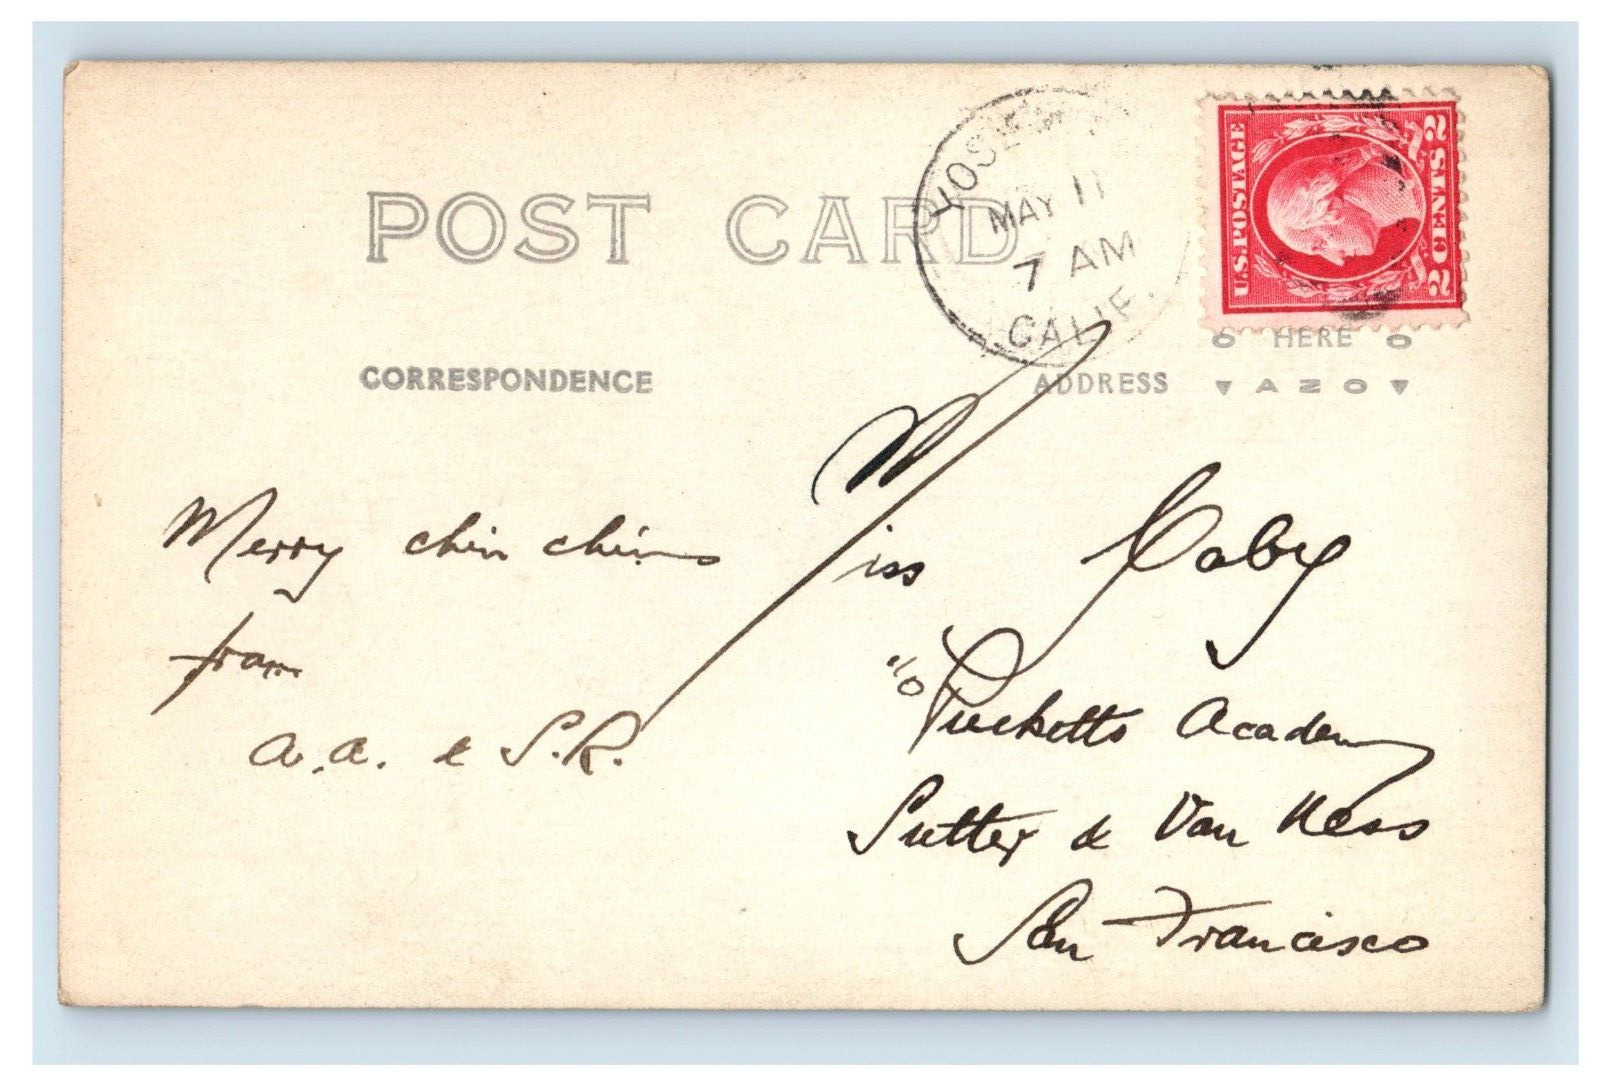 POST CARD
MAY 11
7 AM
CALIF.
U.S. POSTAGE
2 CENTS 2
HERE
AZO
CORRESPONDENCE
ADDRESS
Merry chin chins
from
A.A. & S.R.
Miss
c/o Pucketts Academy
Sutter & Van Ness
San Francisco